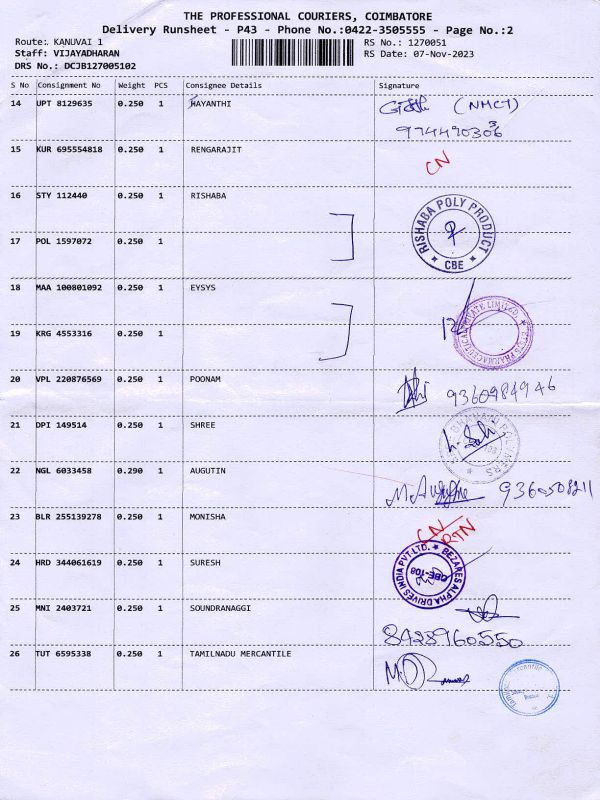 THE PROFESSIONAL COURIERS, COIMBATORE
Delivery Runsheet - P43 - Phone No.:0422-3505555 - Page No.:2
Route:. KANUVAI 1
RS No.: 1270051
Staff: VIJAYADHARAN
RS Date: 07-Nov-2023
DRS No.: DCJB127005102
S No Consignment No Weight PCS Consignee Details Signature
14 UPT 8129635 0.250 1 HAYANTHI (NMCT)
15 KUR 695554818 0.250 1 RENGARAJIT CN
16 STY 112440 0.250 1 RISHABA
RISHABA POLY PRODUCT
★ CBE ★
17 POL 1597072 0.250 1
18 MAA 100801092 0.250 1 EYSYS
19 KRG 4553316 0.250 1
20 VPL 220876569 0.250 1 POONAM 9360984946
21 DPI 149514 0.250 1 SHREE
22 NGL 6033458 0.290 1 AUGUTIN
23 BLR 255139278 0.250 1 MONISHA CN
RTN
24 HRD 344061619 0.250 1 SURESH
BEZARES ALPHA DRIVES INDIA PVT.LTD. ★
CBE-108
25 MNI 2403721 0.250 1 SOUNDRANAGGI
8428960550
26 TUT 6595338 0.250 1 TAMILNADU MERCANTILE